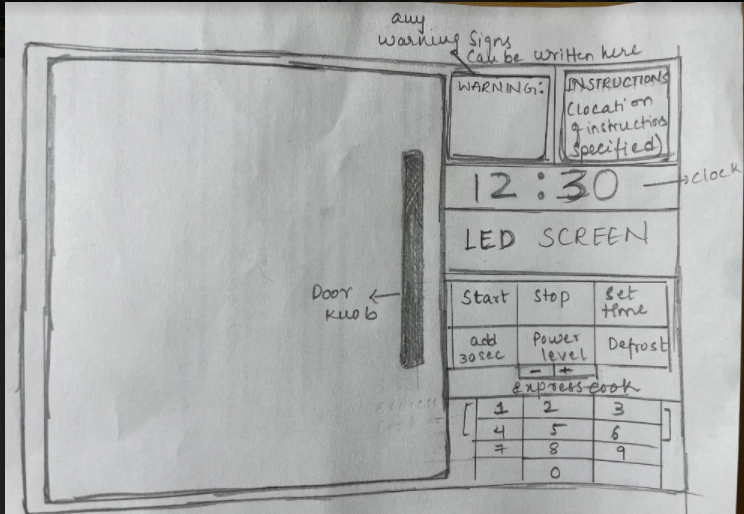 any
warning signs
can be written here
WARNING:
INSTRUCTIONS
(location
of instructions
specified)
12:30
clock
LED SCREEN
Door
knob
Start
Stop
Set
time
add
30 sec
Power
level
- +
Defrost
express cook
1 2 3
4 5 6
7 8 9
0